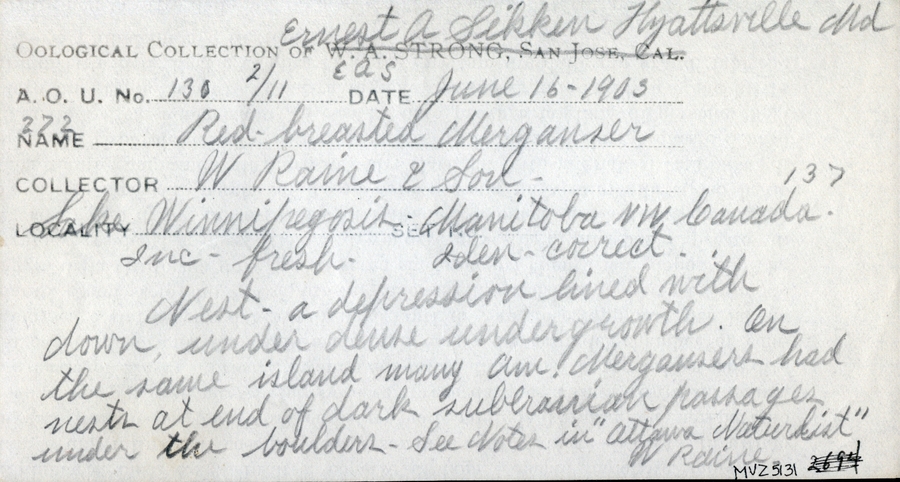 Ernest A Sikken Hyattsville Md
OOLOGICAL COLLECTION OF W. A. STRONG, SAN JOSE, CAL.
EAS
A. O. U. No. 130 2/11 DATE June 16-1903
272
NAME Red-breasted Merganser
COLLECTOR W Raine & Son - 137
LOCALITY Lake Winnipegosis. Manitoba Canada.
Inc - fresh. Iden - correct.
Nest - a depression lined with
down, under dense undergrowth. On
the same island many Am. Mergansers had
nests at end of dark subterranian passages
under the boulders - See Notes in "Ottawa Naturalist"
W Raine.
MVZ 5131 2694